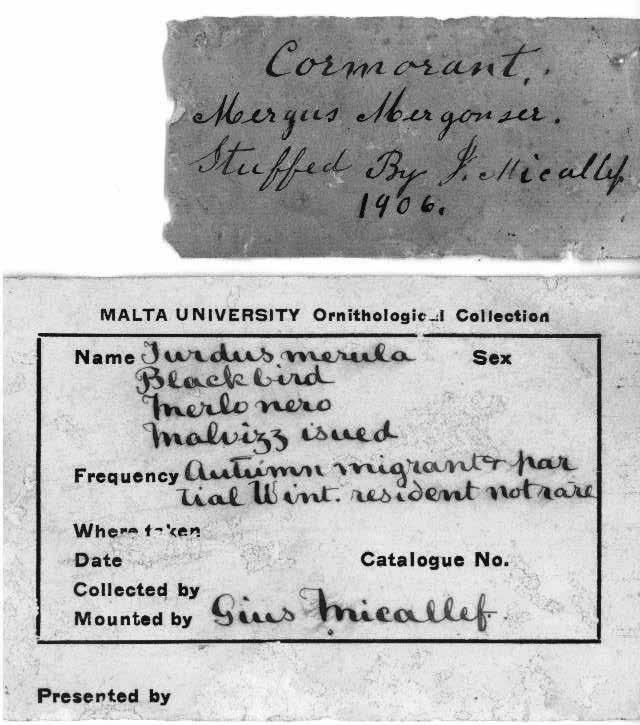 Cormorant.
Mergus Mergonser.
Stuffed By J. Micallef
1906.
MALTA UNIVERSITY Ornithological Collection
Name Turdus merula Sex
Blackbird
Merlo nero
Malvizz isued
Frequency Autumn migrant & par
tial Wint. resident not rare
Where taken
Date Catalogue No.
Collected by
Mounted by Gius Micallef
Presented by